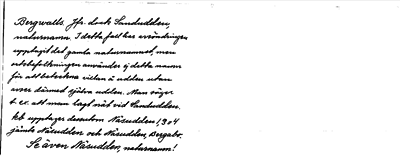 Bergvalls. Jfr. dock Sandudden,
naturnamn. I detta fall har avsöndringen
upptagit det gamla naturnamnet, men
ortsbefolkningen använder ej detta namn
för att beteckna villan å udden utan
avser därmed själva udden. Man säger
t. ex. att man lagt nät vid Sandudden.
kb upptager dessutom Näsudden 1/904
jämte Näsudden och Näsudden, Bergabo.
Se även Näsudden, naturnamn!